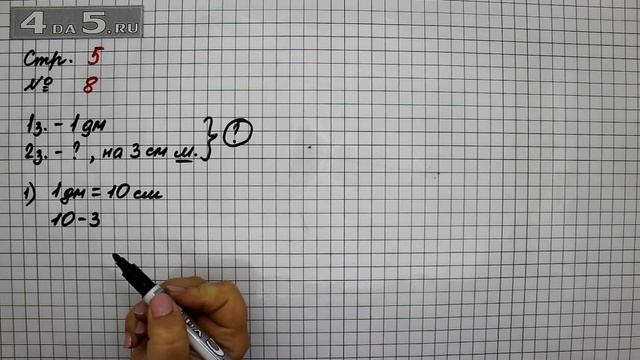 4DA5.RU
Стр. 5
№ 8
1з. - 1 дм
2з. - ? , на 3 см м. } ?
1) 1 дм = 10 см
10 - 3